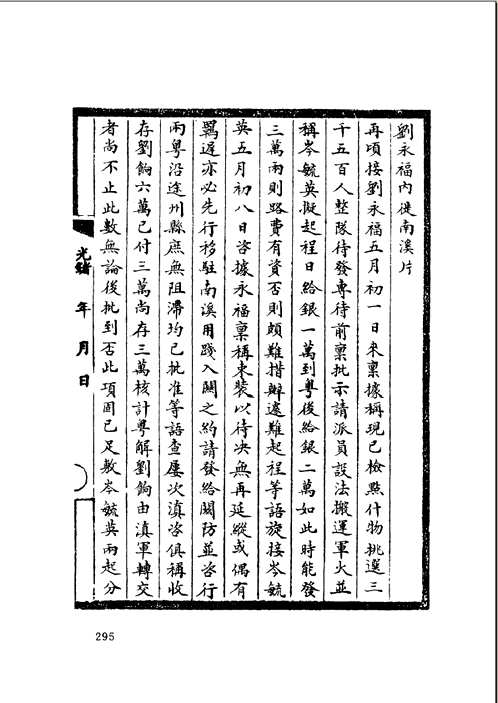 劉永福內徙南溪片
再頃接劉永福五月初一日來稟據稱現已檢點什物挑選三
千五百人整隊待發專待前稟批示請派員設法搬運軍火並
稱岑毓英擬起程日給銀一萬到粵後給銀二萬如此時能發
三萬兩則路費有資否則頗難措辦遽難起程等語旋接岑毓
英五月初八日咨據永福稟稱束裝以待決無再延縱或偶有
羈遲亦必先行移駐南溪用踐入關之約請發給關防並咨行
兩粵沿途州縣庶無阻滯均已批准等語查屢次滇咨俱稱收
存劉餉六萬已付三萬尚存三萬核計粵解劉餉由滇軍轉交
者尚不止此數無論後批到否此項固已足敷岑毓英兩起分
光緒 年 月 日
295